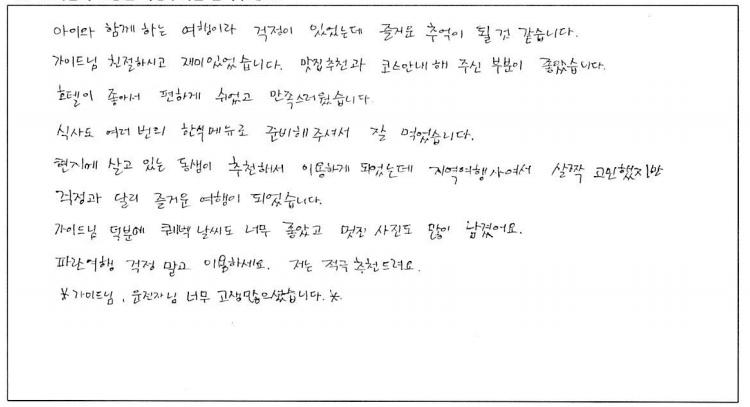 아이와 함께 하는 여행이라 걱정이 있었는데 즐거운 추억이 될 것 같습니다.
가이드님 친절하시고 재미있었습니다. 맛집추천과 코스안내해 주신 부분이 좋았습니다.
호텔이 좋아서 편하게 쉬었고 만족스러웠습니다.
식사도 여러 번의 한식메뉴로 준비해주셔서 잘 먹었습니다.
현지에 살고 있는 동생이 추천해서 이용하게 되었는데 지역여행사여서 살짝 고민했지만
걱정과 달리 즐거운 여행이 되었습니다.
가이드님 덕분에 퀘벡 날씨도 너무 좋았고 멋진 사진도 많이 남겼어요.
파란여행 걱정 말고 이용하세요. 저는 적극 추천드려요.
※가이드님, 운전자님 너무 고생많으셨습니다.※